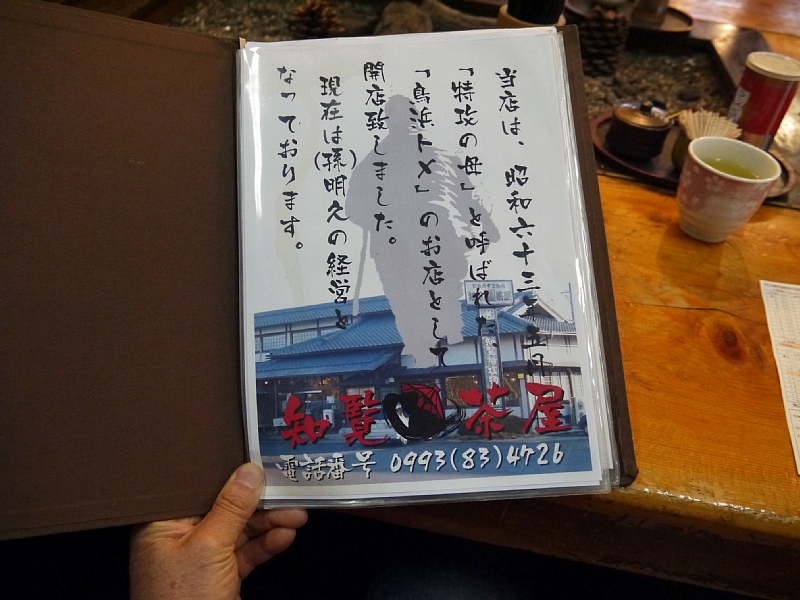 当店は、昭和六十三年五月
「特攻の母」と呼ばれた
「鳥浜トメ」のお店として
開店致しました。
現在は(孫)明久の経営と
なっております。
知覧茶屋
電話番号 0993(83)4726